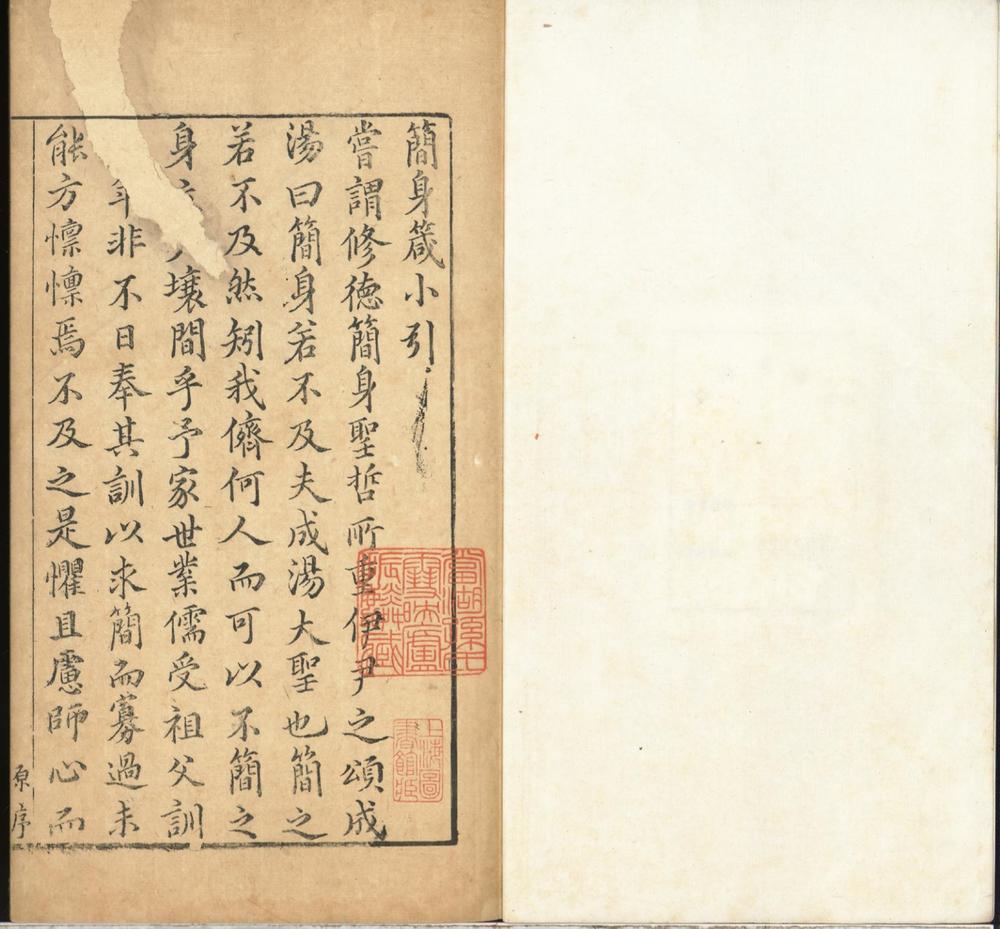 簡身箴小引
嘗謂修德簡身聖哲所重伊尹之頌成
湯曰簡身若不及夫成湯大聖也簡之
若不及然矧我儕何人而可以不簡之
身 壤間乎予家世業儒受祖父訓
年非不日奉其訓以求簡而寡過未
能方懔懔焉不及之是懼且慮師心而
原序
當湖孫氏雪映廬 藏
上海圖書館藏